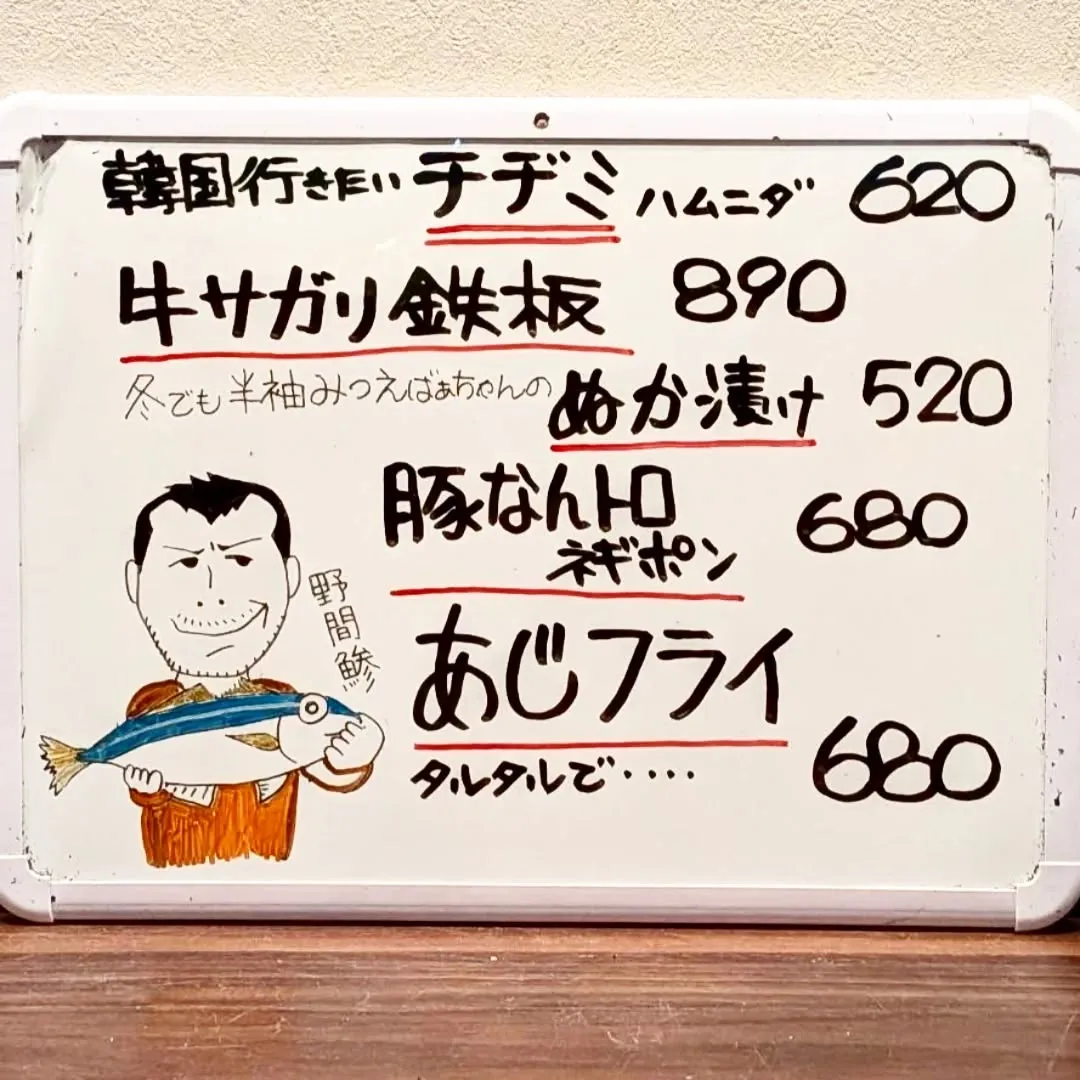 韓国行きたいチヂミハムニダ 620
牛サガリ鉄板 890
冬でも半袖みつえばぁちゃんのぬか漬け 520
豚なんトロ 680
ネギポン
あじフライ
タルタルで‥‥ 680
野間鯵